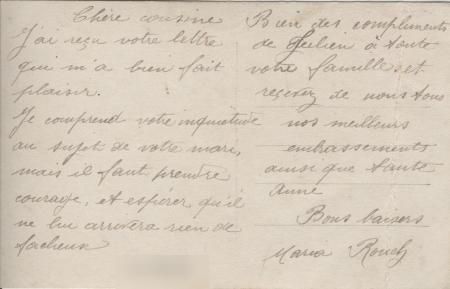 Chère cousine
J'ai reçu votre lettre
qui m'a bien fait
plaisir.
Je comprend votre inquietude
au sujet de votre mari,
mais il faut prendre
courage, et espérer qu'il
ne lui arrivera rien de
facheux
Bien des compliments
de à toute
votre famille et
recevez de nous tous
nos meilleurs
embrassements
ainsi que tante
Anne
Bons baisers
Maria